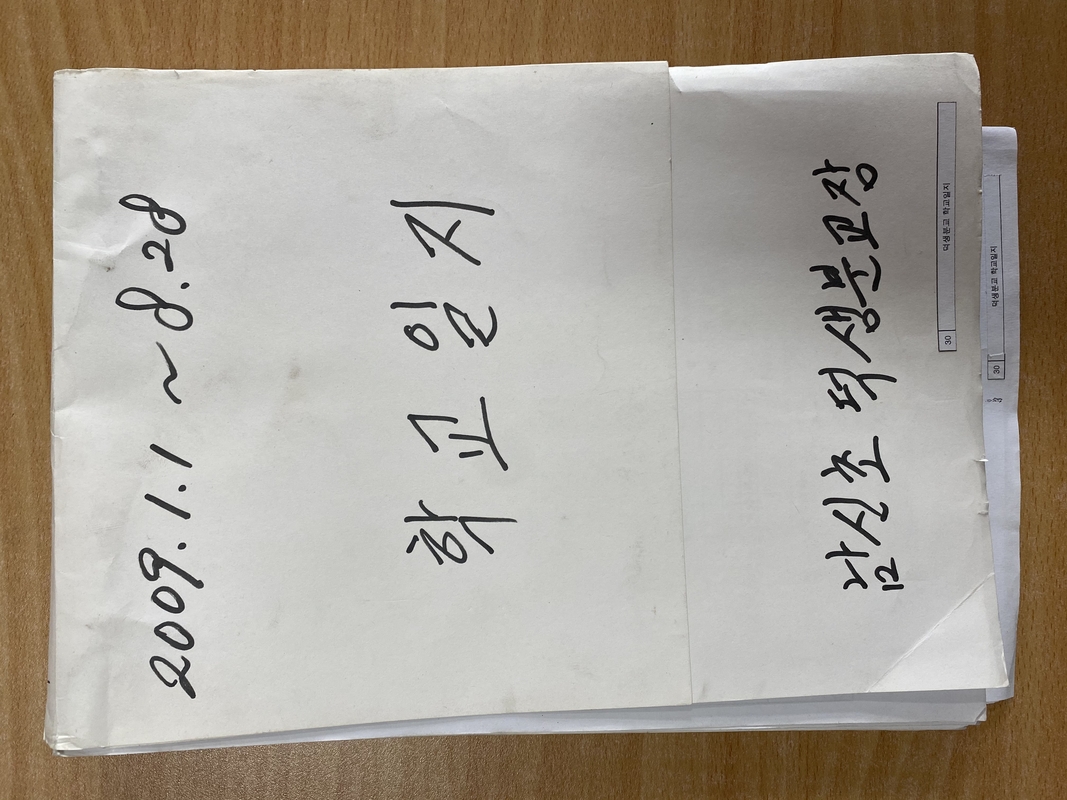 2009.1.1 ~ 8.28
학교일지
남신초 덕생분교장
30 덕생분교 학교일지
30 덕생분교 학교일지